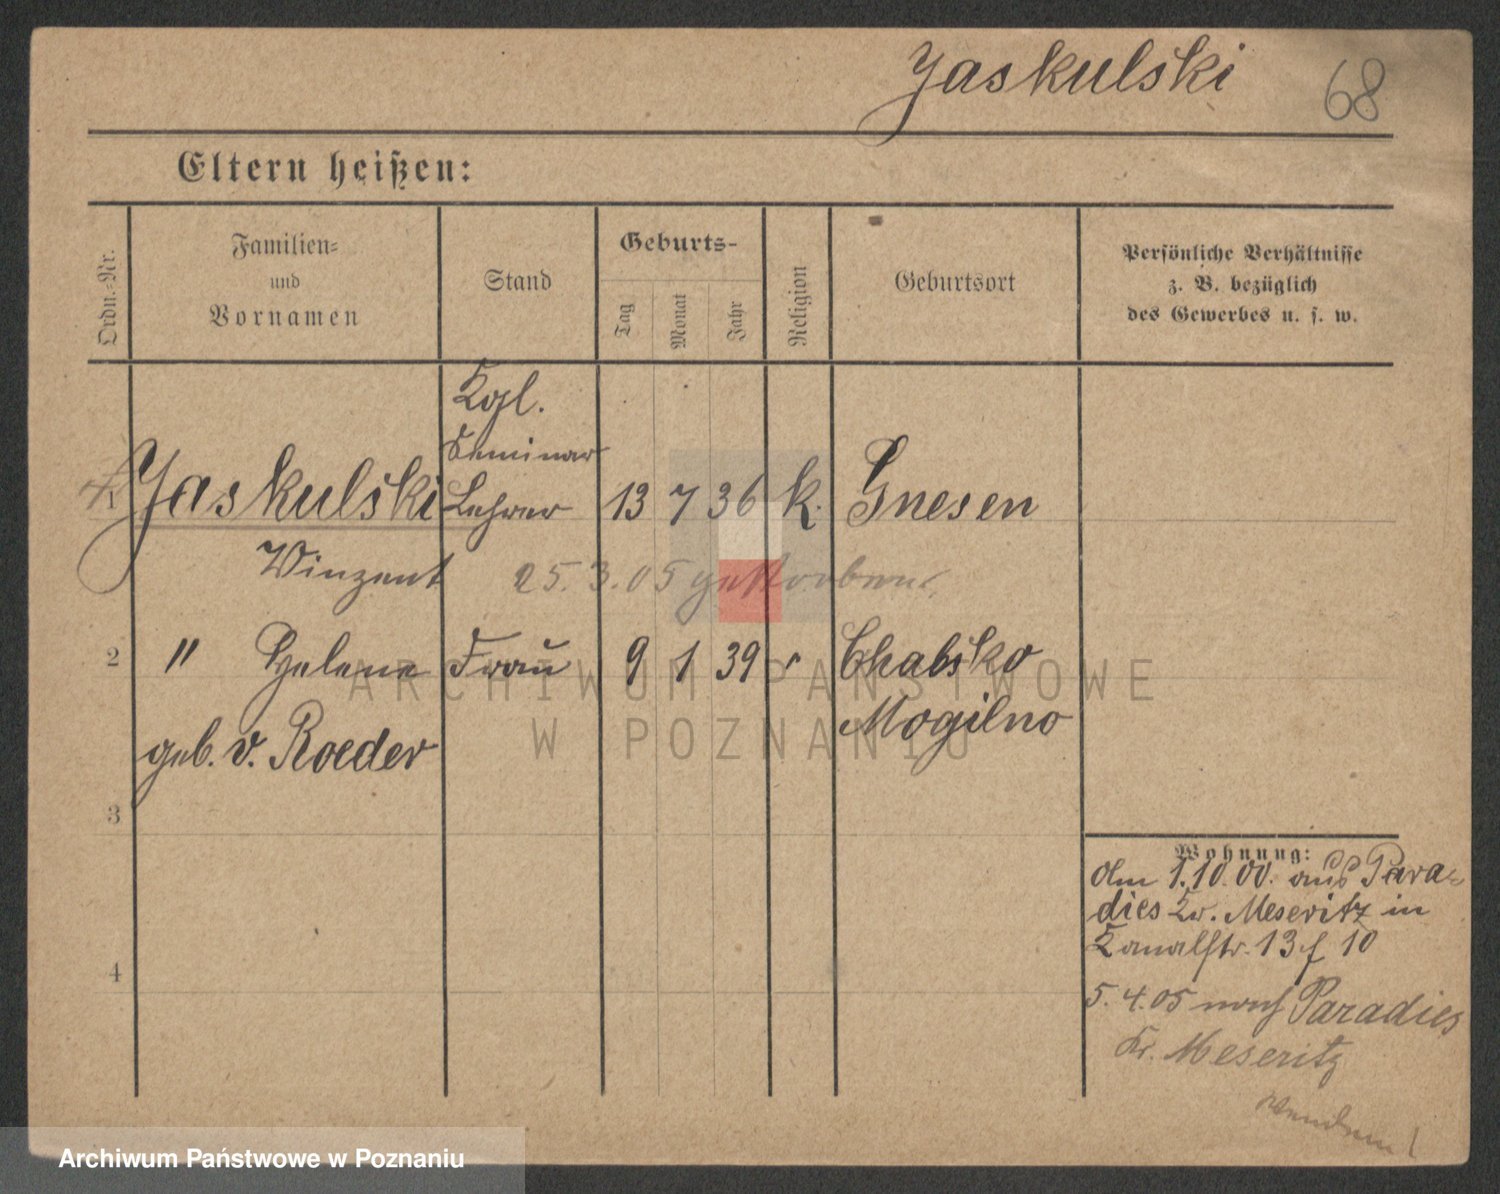 Jaskulski 68
Eltern heißen:
Ordn.-Nr.
Familien-
und
Vornamen
Stand
Geburts-
Tag
Monat
Jahr
Religion
Geburtsort
Persönliche Verhältnisse
z. B. bezüglich
des Gewerbes u. s. w.
Kgl.
Seminar
1 Jaskulski Lehrer 13 7 36 k. Gnesen
Vinzent 25.3.05 gestorben
2 " Helene Frau 9 1 39 " Chabsko
Mogilno
geb. v. Roeder
3
4
Wohnung:
Am 1.10.00. aus Para-
dies Kr. Meseritz in
Kanalstr. 13 f 10
5.4.05 nach Paradies
Kr. Meseritz
wenden!
ARCHIWUM PAŃSTWOWE
W POZNANIU
Archiwum Państwowe w Poznaniu